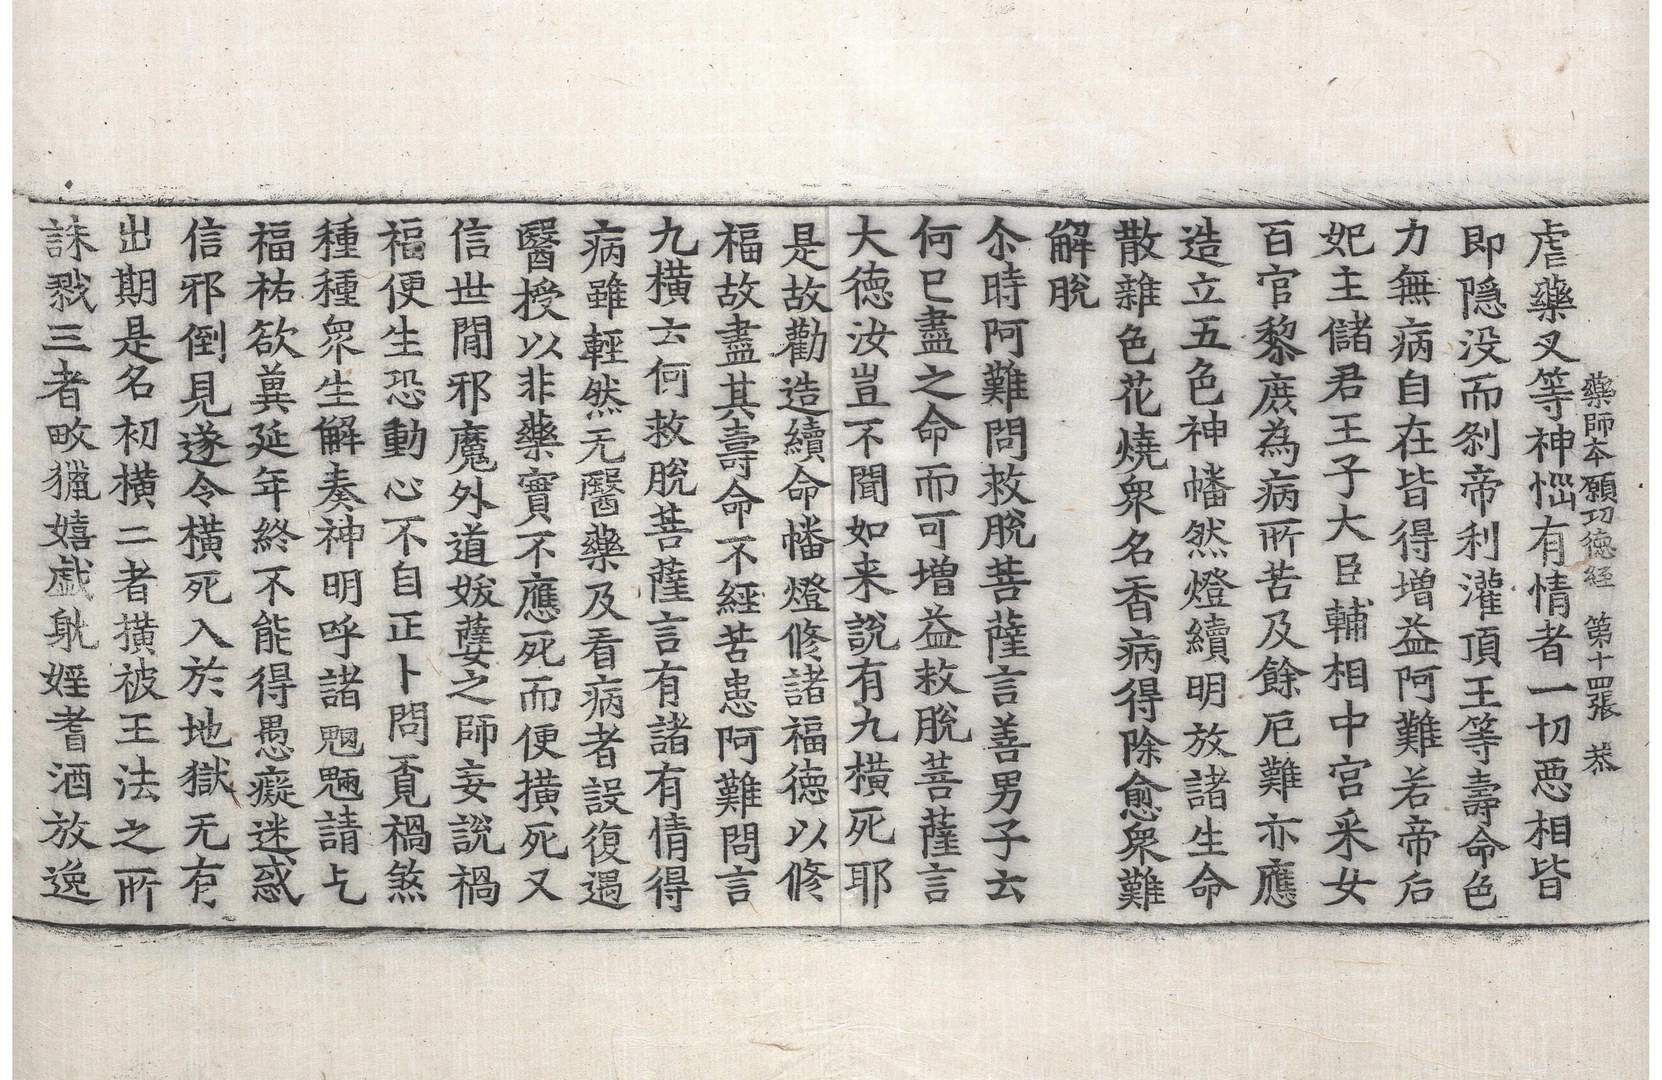 藥師本願功德經 第十四張 恭
虐藥叉等神惱有情者一切惡相皆
即隱没而刹帝利灌頂王等壽命色
力無病自在皆得增益阿難若帝后
妃主儲君王子大臣輔相中宮釆女
百官黎庶為病所苦及餘厄難亦應
造立五色神幡然燈續明放諸生命
散雜色花燒衆名香病得除愈衆難
解脫
尒時阿難問救脫菩薩言善男子云
何已盡之命而可增益救脫菩薩言
大德汝豈不聞如来說有九橫死耶
是故勸造續命幡燈修諸福德以修
福故盡其壽命不經苦患阿難問言
九橫云何救脫菩薩言有諸有情得
病雖輕然无醫藥及看病者設復遇
醫授以非藥實不應死而便橫死又
信世間邪魔外道妖孽之師妄說禍
福便生恐動心不自正卜問覔禍煞
種種衆生解奏神明呼諸魍魎請乞
福祐欲冀延年終不能得愚癡迷惑
信邪倒見遂令橫死入於地獄无有
出期是名初橫二者橫被王法之所
誅戮三者畋獵嬉戲躭婬耆酒放逸